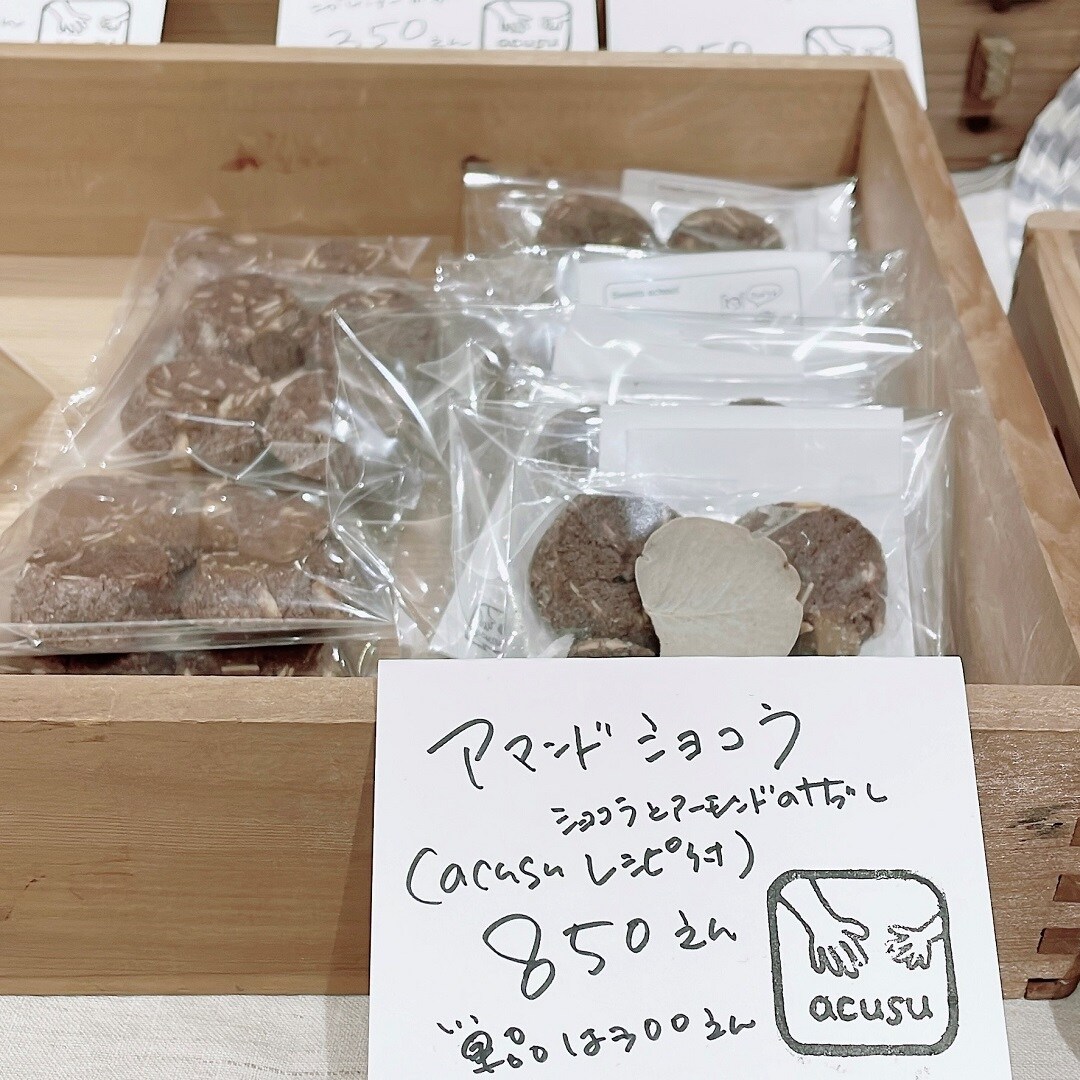 350えん
acusu
アマンドショコラ
ショコラとアーモンドのサブレ
(acusu レシピ付)
850えん
単品は300えん
acusu